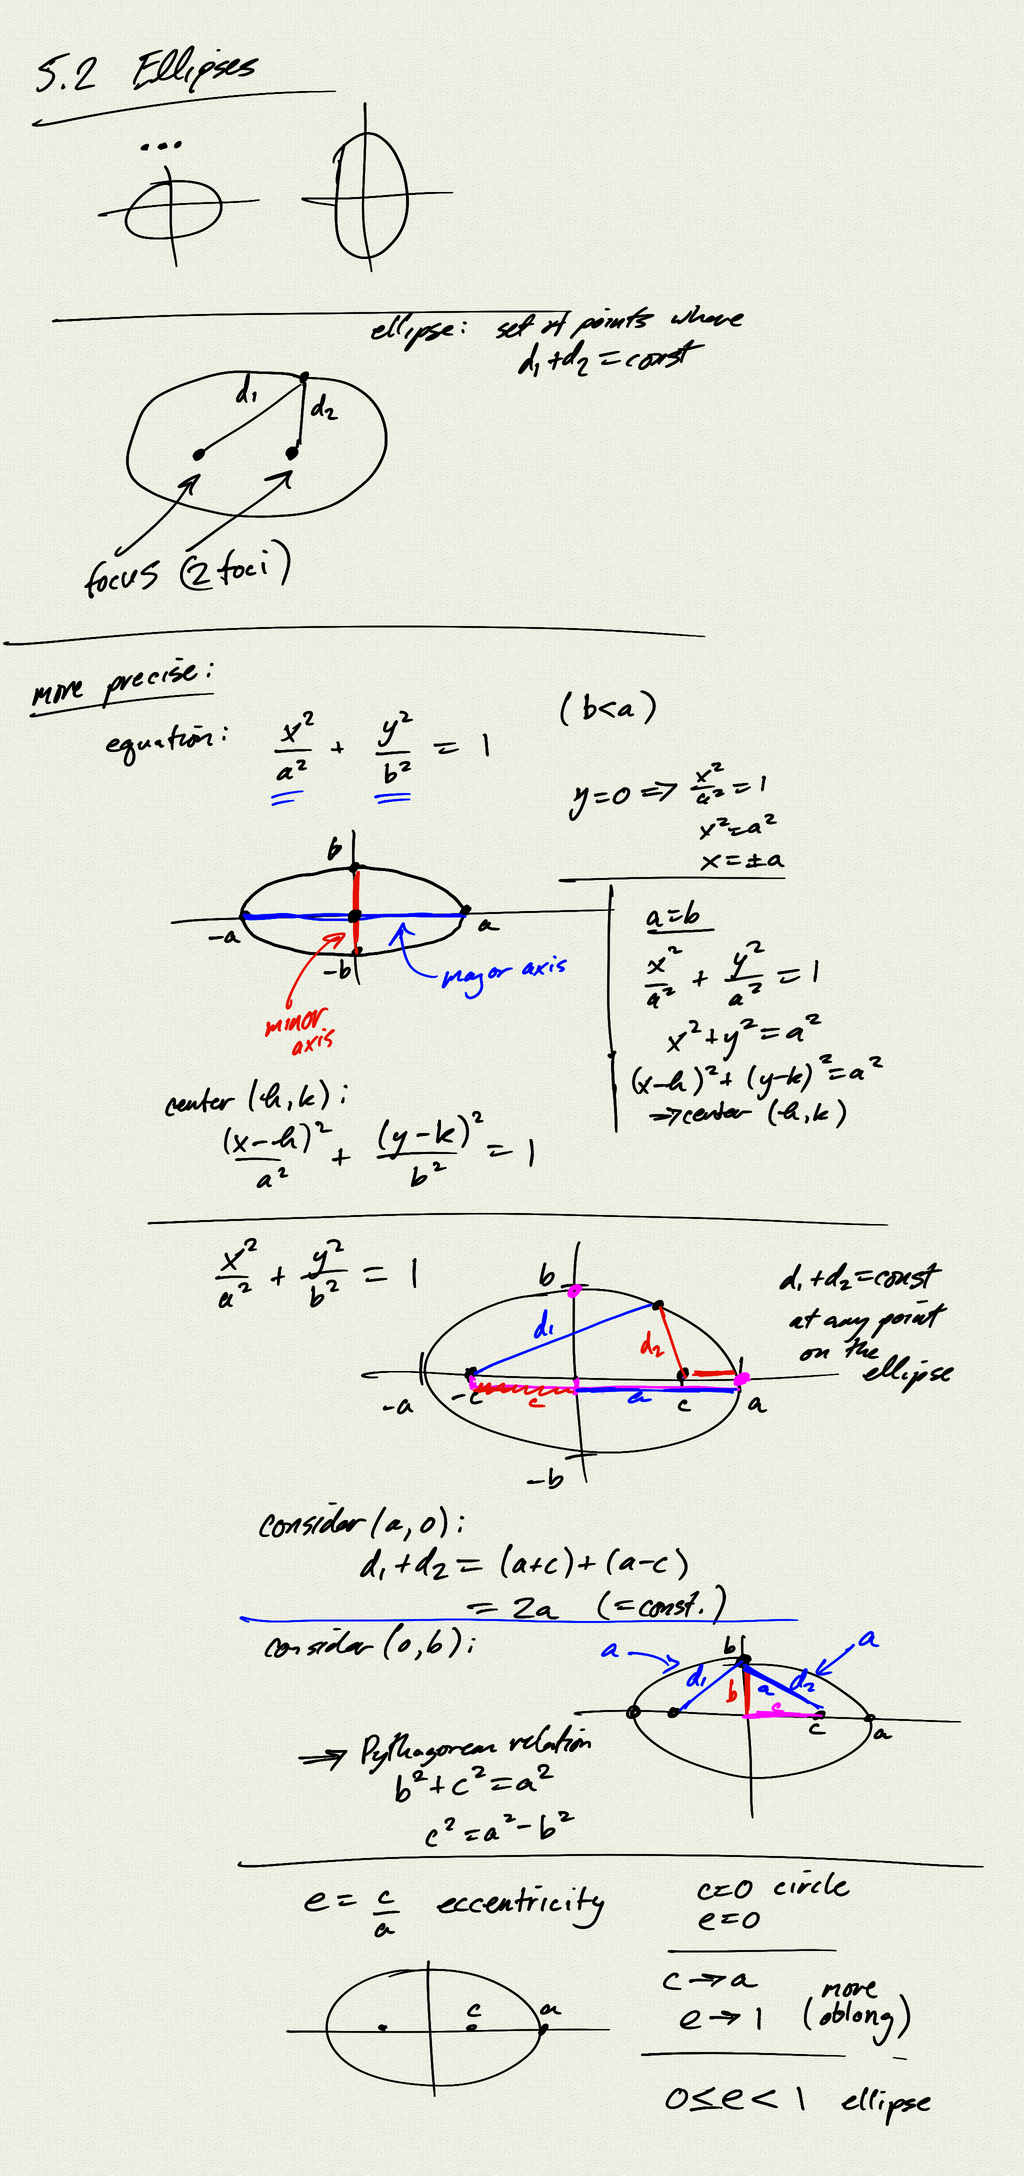 5.2 Ellipses
...
ellipse: set of points where
d₁+d₂=const
d₁
d₂
focus (2 foci)
more precise:
(b<a)
equation: x²/a² + y²/b² = 1
y=0 ⇒ x²/a²=1
x²=a²
x=±a
b
-a
a
-b
major axis
minor
axis
a=b
x²/a² + y²/a² = 1
x²+y²=a²
(x-h)²+(y-k)²=a²
⇒center (h,k)
center (h,k):
(x-h)²/a² + (y-k)²/b² = 1
x²/a² + y²/b² = 1
b
d₁
d₂
-a
-c
c
a
c
a
-b
d₁+d₂=const
at any point
on the
ellipse
consider (a,0):
d₁+d₂= (a+c)+(a-c)
= 2a (=const.)
consider (0,b):
a
b
a
d₁
b
a
d₂
c
c
a
⇒ Pythagorean relation
b²+c²=a²
c²=a²-b²
e = c/a eccentricity
c
a
c=0 circle
e=0
c→a
e→1
(more
oblong)
0≤e<1 ellipse